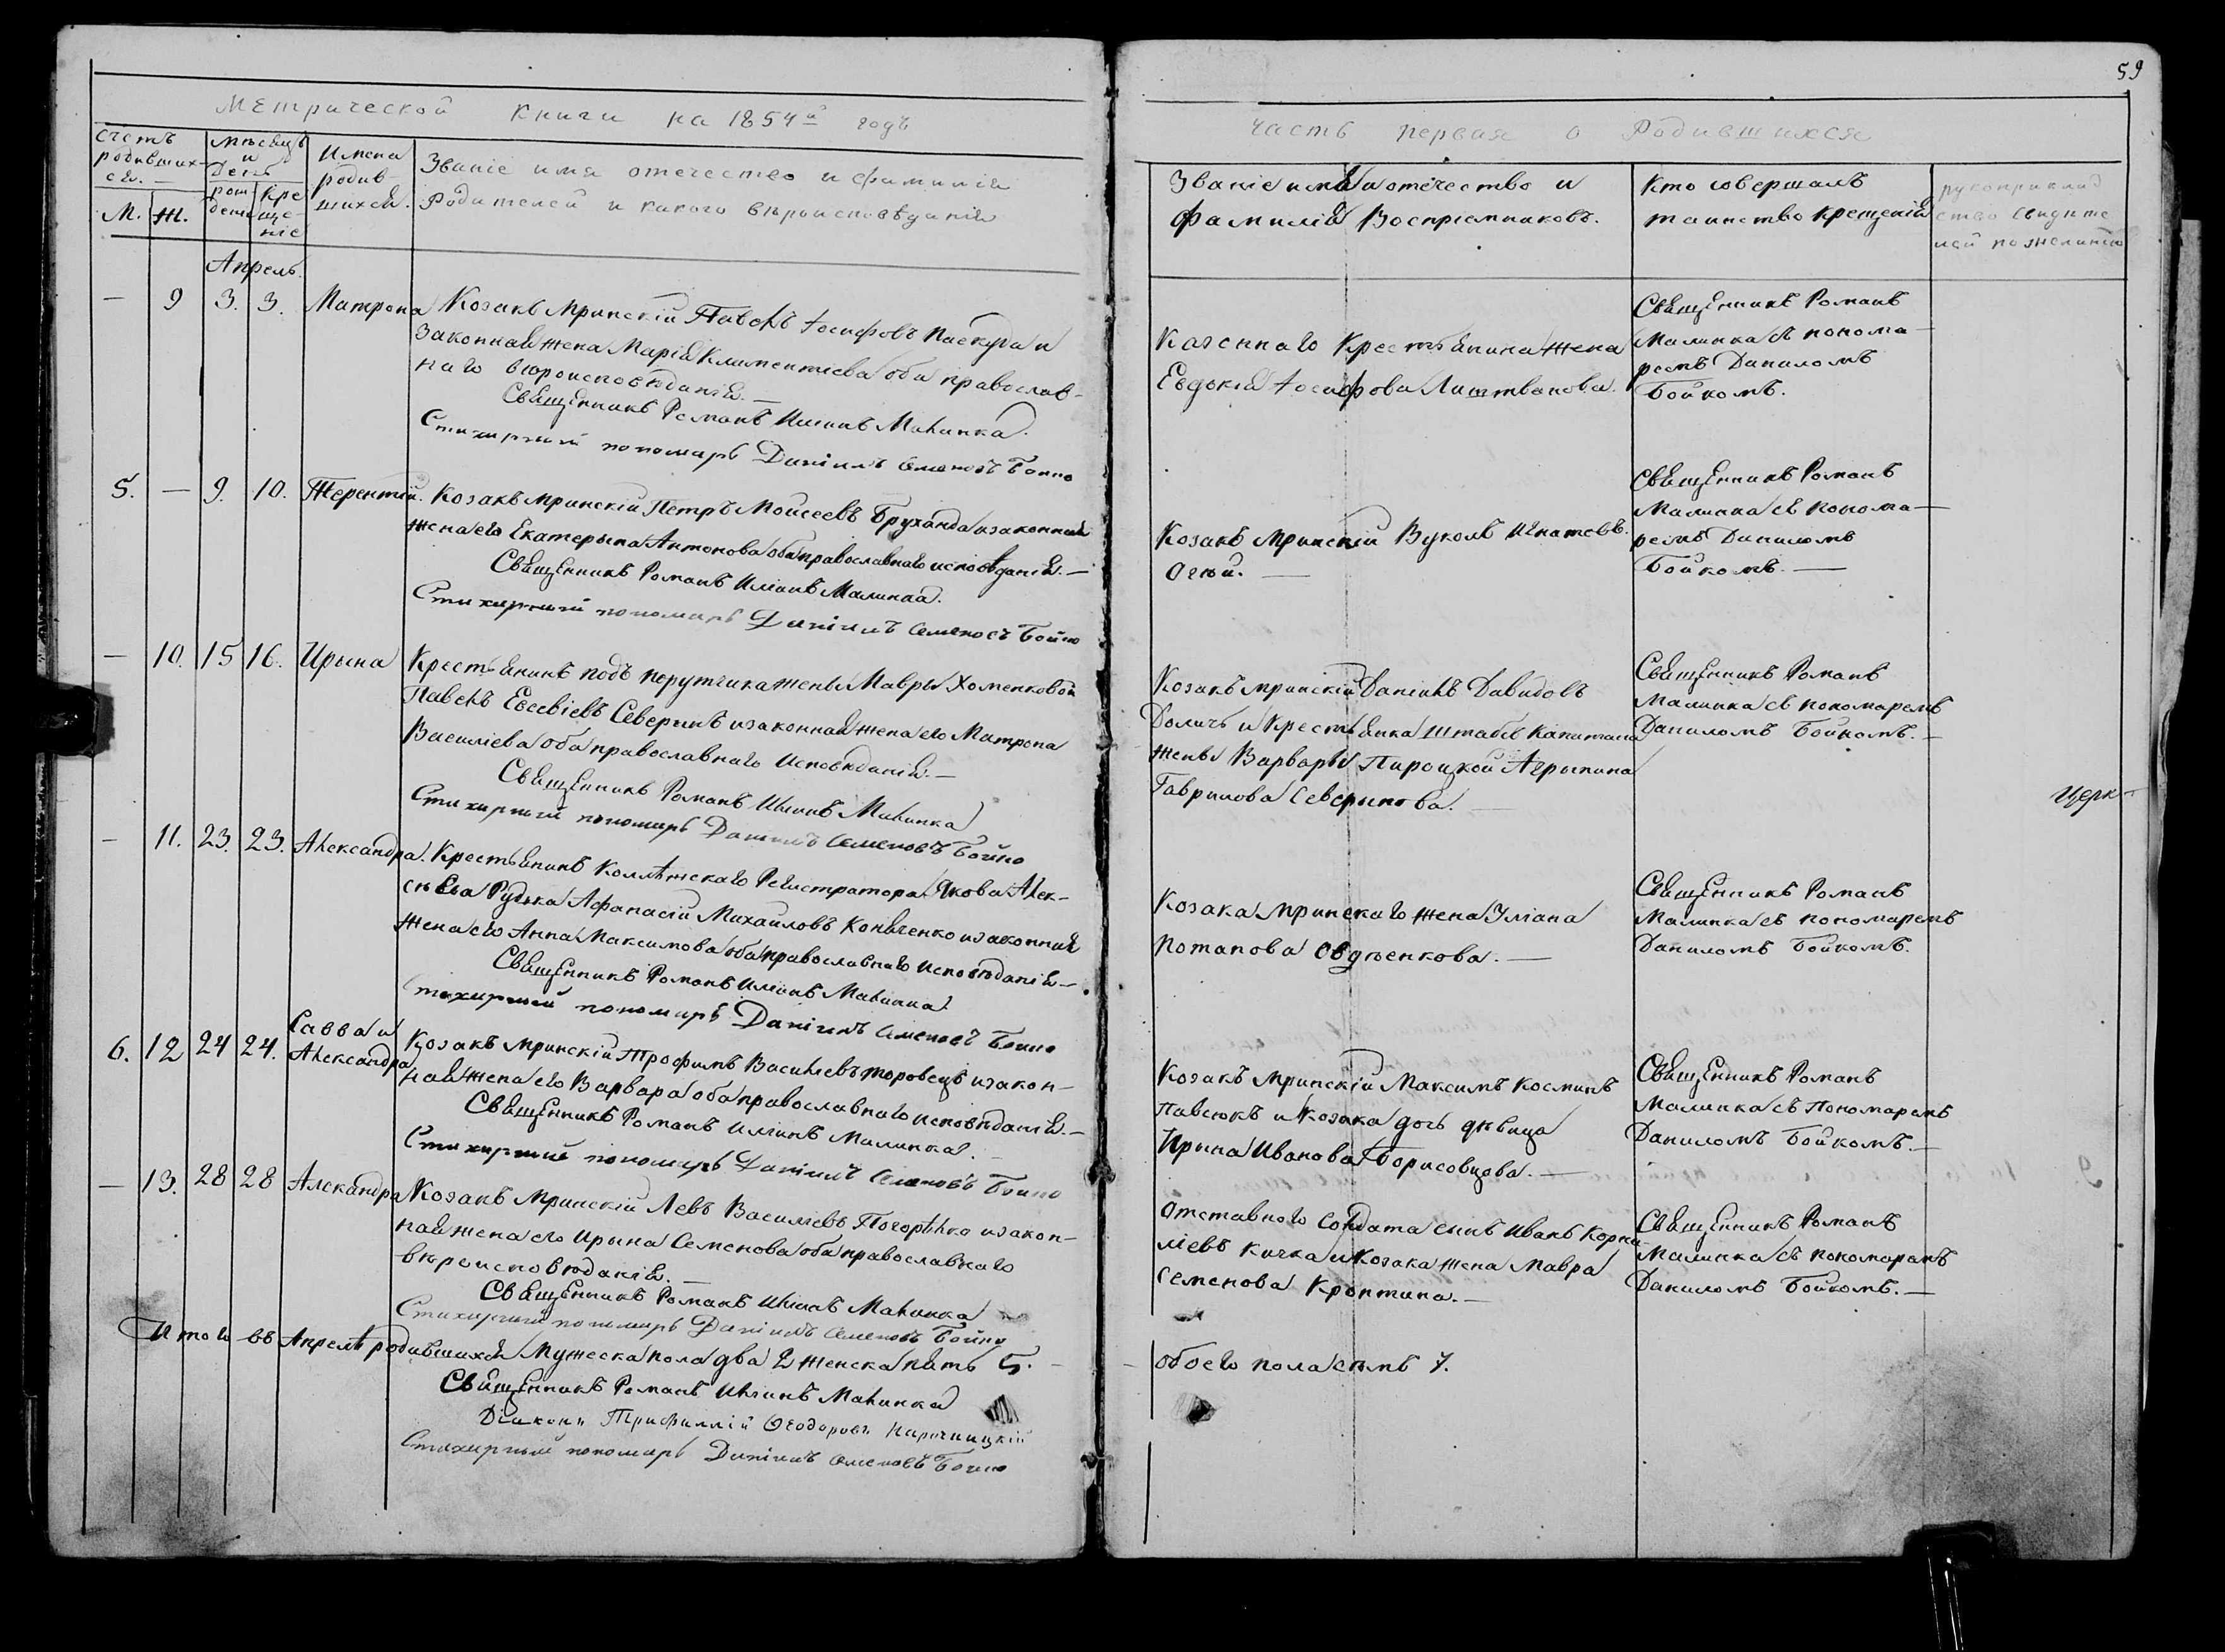 59
Метрической книги на 1854й годъ
Часть первая о Родившихся
Счетъ родивших-ся.
М. Ж.
Мѣсяцъ и День
рож-дені Кре-ще-ніе
Имена родив-шихся.
Званіе имя отечество и фамилія
Родителей и какого вѣроисповѣданія
Званіе имя и отечество и
фамилія Воспріемниковъ.
Кто совершалъ
таинство крещенія
рукоприклад
ство свидѣте
лей по желанію
Апрель.
— 9 3. 3. Матрона
Козакъ Мринскій Павелъ Іосифовъ Паскуда и
законная жена Марія Климентіева оба православ-
наго вѣроисповѣданія. —
Священникъ Романъ Иліинъ Малинка.
Стихирный пономарь Даніилъ Семеновъ Бойко
Казеннаго Крестьянина жена
Евдокія Іосифова Лиштванова.
Священникъ Романъ
Малинка съ понома-
ремъ Даниломъ
Бойкомъ.
5. — 9. 10. Терентій.
Козакъ Мринскій Петръ Моисеевъ Бруханда и законная
жена его Екатерына Антонова оба православнаго исповѣданія. —
Священникъ Романъ Иліинъ Малинка.
Стихирный пономарь Даніилъ Семеновъ Бойко
Козакъ Мринскій Вуколъ Игнатовъ
Огюй. —
Священникъ Романъ
Малинка съ понома-
ремъ Даниломъ
Бойкомъ. —
— 10. 15 16. Ирына
Крестьянинъ подъ порутчика жены Мавры Хоменковой
Павелъ Евсевіевъ Северинъ и законная жена его Матрона
Василіева оба православнаго Исповѣданія. —
Священникъ Романъ Иліинъ Малинка
Стихирный пономарь Даніилъ Семеновъ Бойко
Козакъ Мринскій Даніилъ Давидовъ
Доличъ и Крестьянка Штабсъ Капитана
жены Варвары Пироцкой Агрыпина
Гаврилова Северинова. —
Священникъ Романъ
Малинка съ пономаремъ
Даниломъ Бойкомъ. —
Церк-
— 11. 23. 23. Александра.
Крестьянинъ Коллѣжскаго Регистратора Якова Алек-
сѣева Рудька Афанасій Михайловъ Коньченко и законная
жена его Анна Максимова оба православнаго исповѣданія —
Священникъ Романъ Иліинъ Малинка
Стихирный пономарь Даніилъ Семеновъ Бойко
Козака Мринскаго жена Уліана
Потапова Овдѣенкова. —
Священникъ Романъ
Малинка съ пономаремъ
Даниломъ Бойкомъ.
6. 12 24 24. Савва и Александра
Козакъ Мринскій Трофимъ Васильевъ Торовецъ и закон-
ная жена его Варвара оба православнаго исповѣданія. —
Священникъ Романъ Иліинъ Малинка. —
Стихирный пономарь Даніилъ Семеновъ Бойко
Козакъ Мринскій Максимъ Косминъ
Павсюкъ и Козака дочь дѣвица
Ирына Иванова Борисовцова. —
Священникъ Романъ
Малинка съ Пономаремъ
Даниломъ Бойкомъ. —
— 13. 28 28 Алекандра
Козакъ Мринскій Левъ Василіевъ Погорѣлко и закон-
ная жена его Ирына Семенова оба православнаго
вѣроисповѣданія. —
Священникъ Романъ Иліинъ Малинка
Стихирный пономарь Даніилъ Семеновъ Бойко
Отставного Солдата сынъ Иванъ Корни-
ліевъ Кичка и Козака жена Мавра
Семенова Кроптина. —
Священникъ Романъ
Малинка съ пономаремъ
Даниломъ Бойкомъ. —
Итого въ Апрелѣ родившихся Мужеска пола два 2 женска пять 5. —
— обоего пола семь 7.
Священникъ Романъ Иліинъ Малинка
Діаконъ Трифиллій Ѳеодоровъ Нарожницкій
Стихирный пономарь Даніилъ Семеновъ Бойко